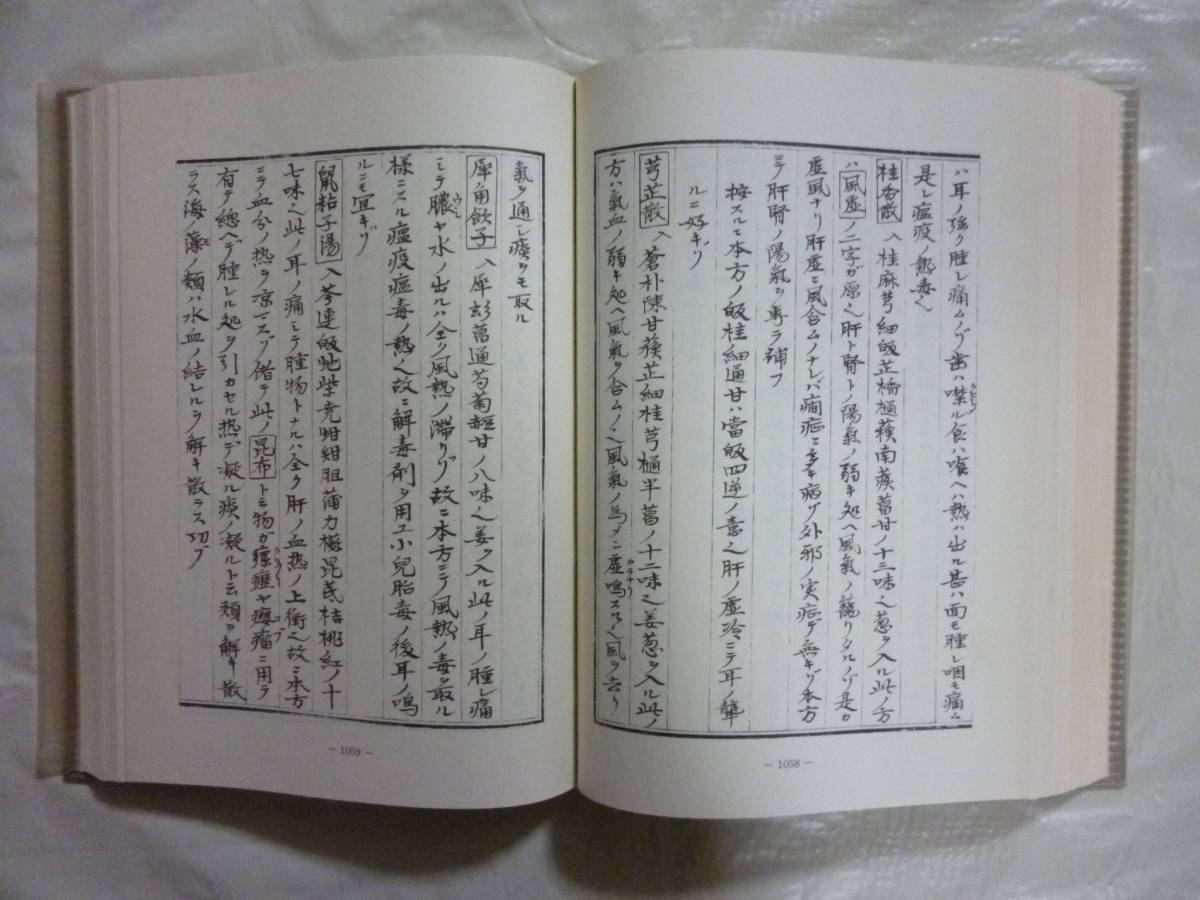 ハ耳ノ強ク腫レ痛ムノゾ歯ハ噤ル食ハ喰ヘハ熱ハ出ル甚ハ面モ腫レ咽モ痛ム
是レ瘟疫ノ熱毒ヘ
桂香散 入桂麻芎細皈芷橘樋蕀南蔟菖甘ノ十三味ヘ葱ヲ入ル此ノ方
ハ風虚ノ二字ガ原ヘ肝ト腎トノ陽氣ノ弱キ処ヘ風氣ノ籠リタルノゾ是カ
虚風ナリ肝虚ニ風含ムノナレバ癇症ニ多キ病ゾ外邪ノ実症デ無キゾ本方
ミテ肝腎ノ陽氣ヲ専ラ補フ
按スルニ本方ノ皈桂細通甘ハ當皈四逆ノ意ヘ肝ノ虚冷ニテ耳ノ聾
ルニ好キゾ
芎芷散 入蒼朴陳甘蔟芷細桂芎樋半菖ノ十二味ヘ姜葱ヲ入ル此ノ
方ハ氣血ノ弱キ処ヘ風氣ヲ含ムノヘ風氣ノ為メニ虚鳴スルヘ風ヲ去リ
— 1058 —
氣ヲ通シ痰ヲモ取ル
犀角飲子 入犀菖通芍菊甘ノ八味ヘ姜ヲ入ル此ノ耳ノ腫レ痛
ミテ膿ヤ水ノ出ルハ全ク風熱ノ滞リゾ故ニ本方ニテ風熱ノ毒ヲ取ル
様ニスル瘟疫瘟毒ノ熱ヘ故ニ解毒剤ヲ用ユ小児胎毒ノ後耳ノ鳴
ルニモ宜キゾ
鼠粘子湯 入芩連皈地柴甘胆蒲力昆芪桔桃紅ノ十
七味ヘ此ノ耳ノ痛ミテ腫物トナルハ全ク肝ノ血熱ノ上衝ヘ故ニ本方
ニテ血分ノ熱ヲ凉マスゾ偖テ此ノ昆布ト云物ガ瘰癧ヤ癭瘤ニ用ラ
有テ總ヘデ腫レル処ヲ引カセル熱デ凝ル痰ノ凝ルト云類ヲ解キ散
ラス海ノ藻ノ類ハ水血ノ結レルヲ解キ散ラス功ゾ
— 1059 —